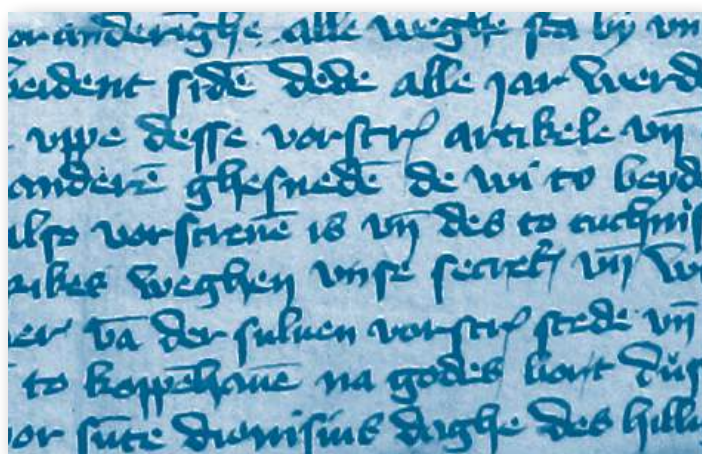 oranderīghe alle weghe sta by vn
beident sidē dede alle jar werd
vppe desse vorscr artikele vn̄
anderē ghesnedē de wi to beyde
also vorscreuē is vn̄ des to tuchnis
rikes weghen vnse secret vn̄ w
er vā der suluen vorscr stede vn̄
to koppēhauē na godes bort dus
or sūte dionisius daghe des hillig